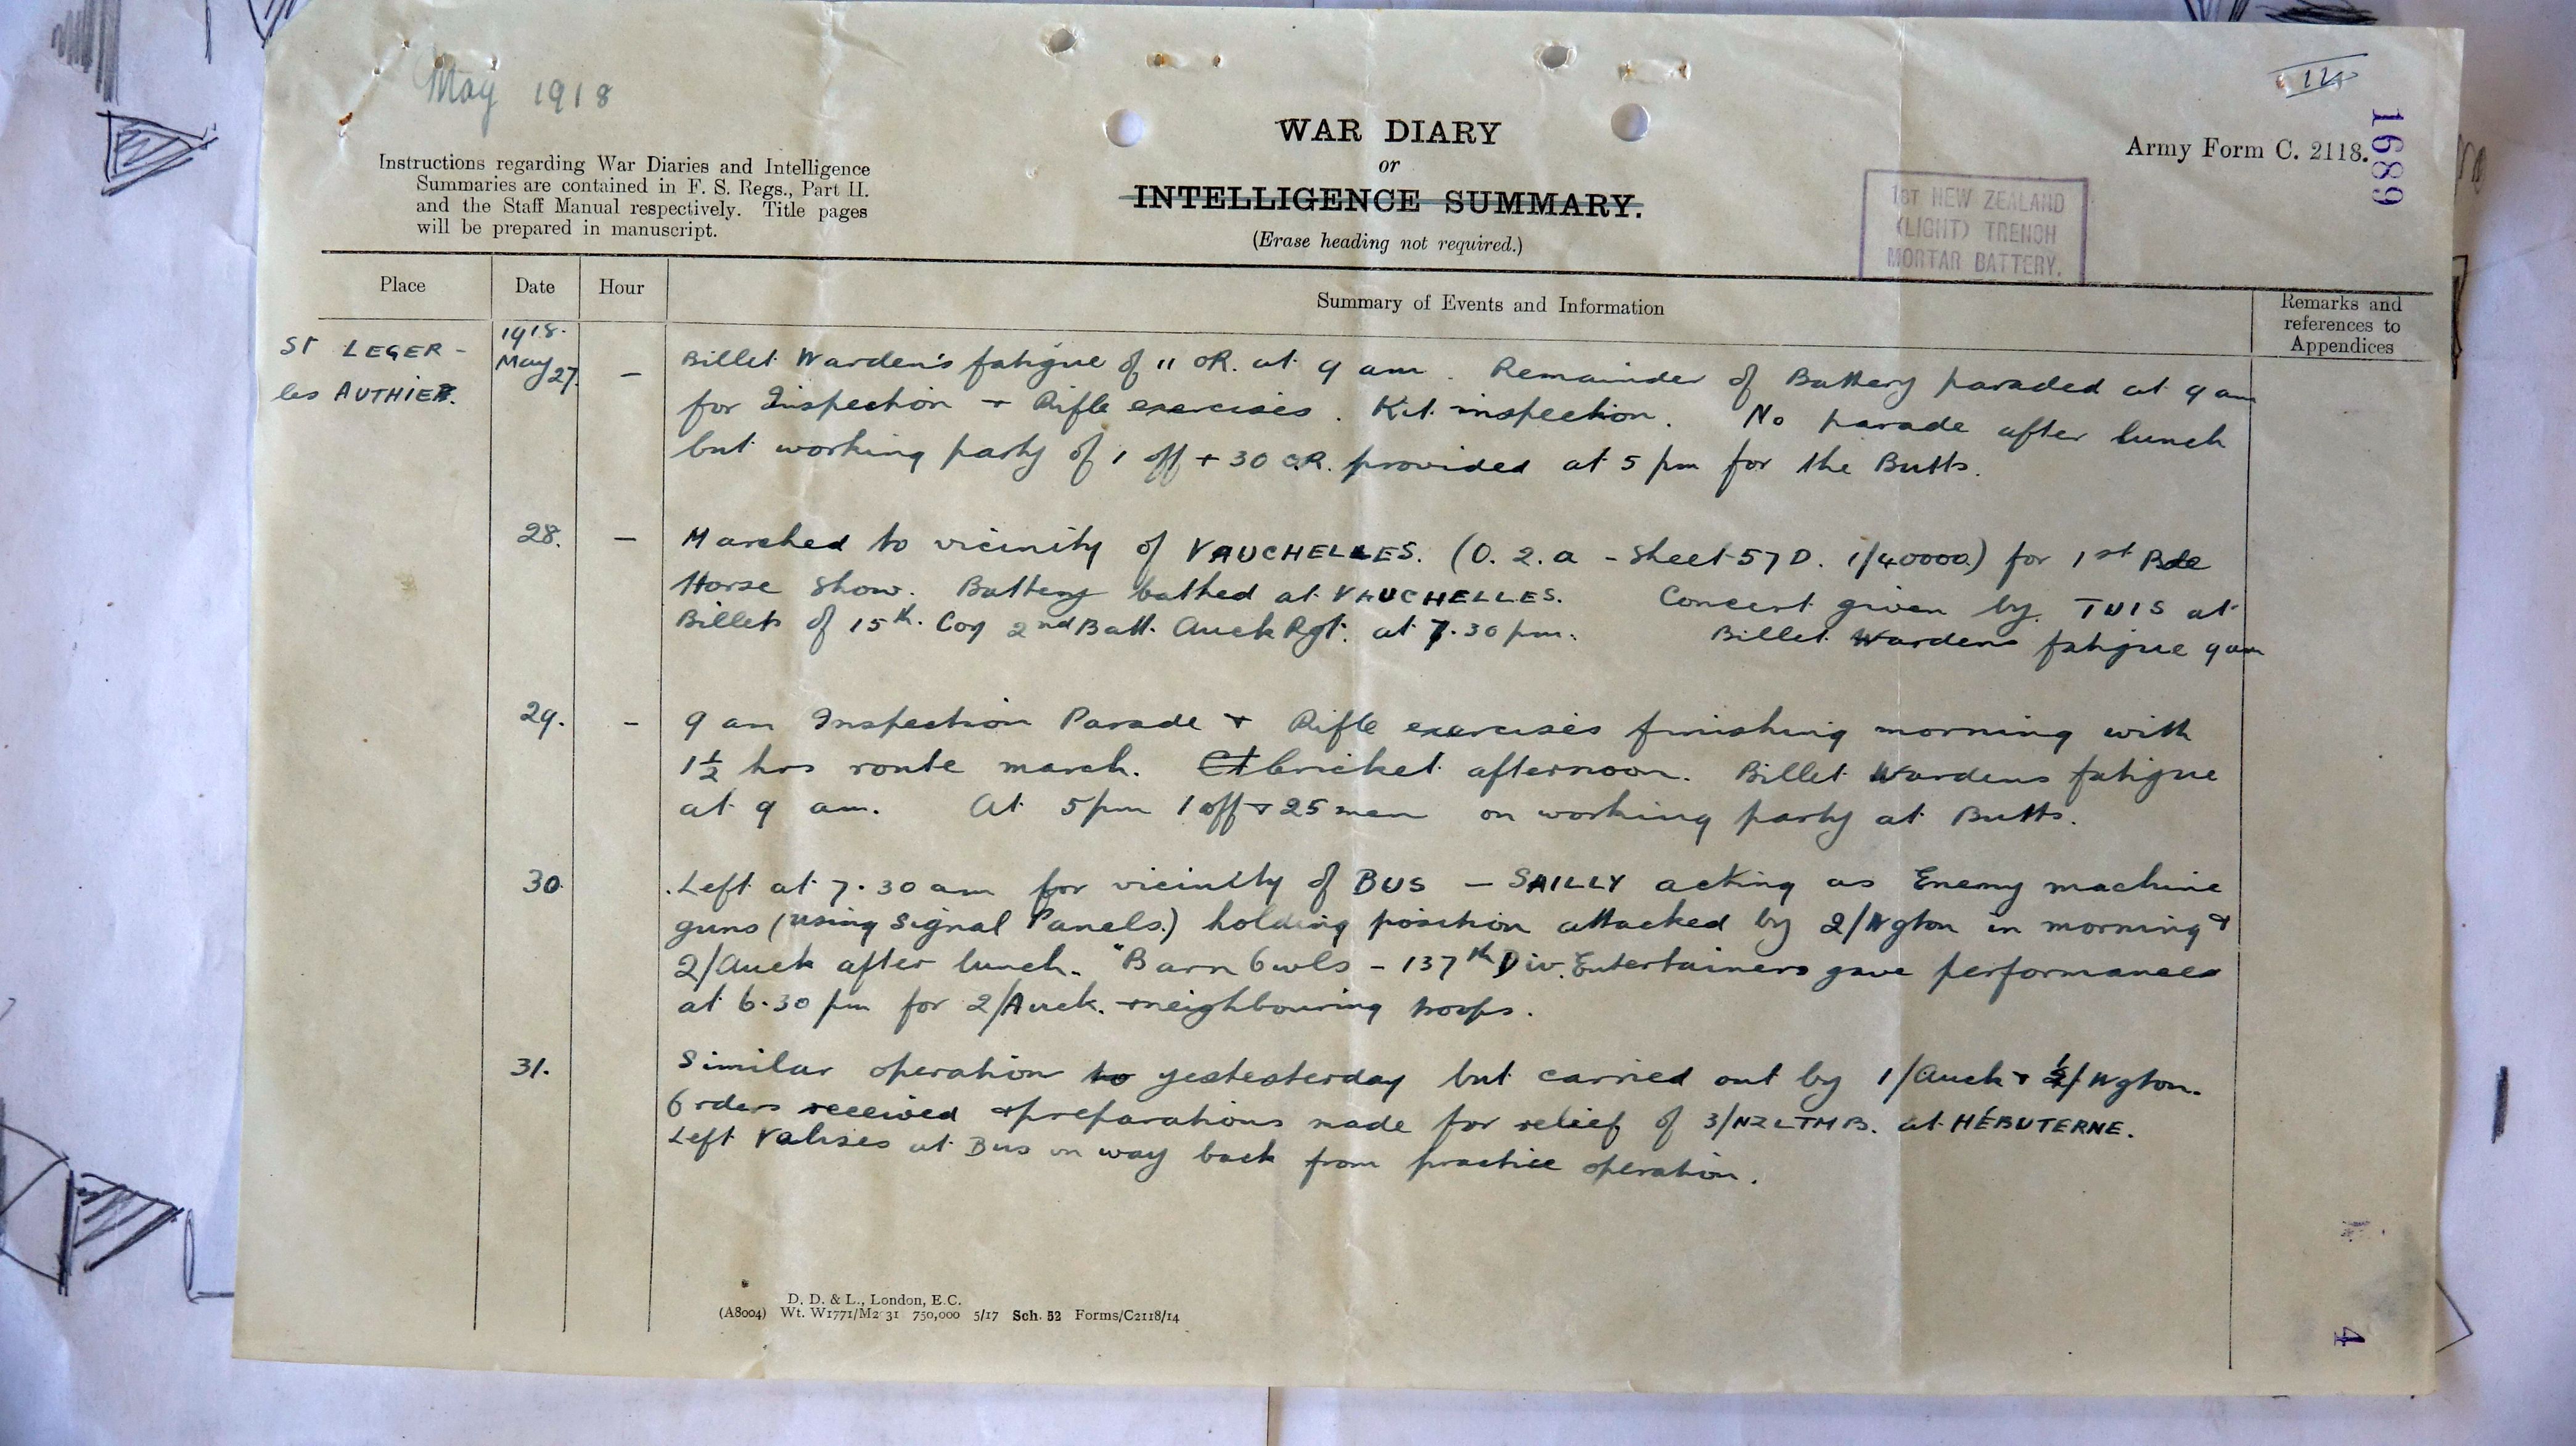 May 1918
Army Form C. 2118.
1689
WAR DIARY
or
INTELLIGENCE SUMMARY.
(Erase heading not required.)
Instructions regarding War Diaries and Intelligence
Summaries are contained in F. S. Regs., Part II.
and the Staff Manual respectively. Title pages
will be prepared in manuscript.
1ST NEW ZEALAND
(LIGHT) TRENCH
MORTAR BATTERY.
Place Date Hour Summary of Events and Information Remarks and
references to
Appendices
ST LEGER -
les AUTHIER.
1918.
May 27. - Billet Warden's fatigue of 11 OR. at 9 am. Remainder of Battery paraded at 9 am
for Inspection + Rifle exercises. Kit inspection. No parade after lunch
but working party of 1 off + 30 OR. provided at 5 pm for the Butts.
28. - Marched to vicinity of VAUCHELLES. (O. 2. a - Sheet 57 D. 1/40000.) for 1st Bde
Horse Show. Battery bathed at VAUCHELLES. Concert given by TUIS at
Billets of 15th. Coy 2nd Batt. Auck Rgt. at 7.30 pm. Billet Wardens fatigue 9 am
29. - 9 am Inspection Parade + Rifle exercises finishing morning with
1½ hrs route march. Cricket afternoon. Billet Wardens fatigue
at 9 am. At 5 pm 1 off + 25 men on working party at Butts.
30. Left at 7.30 am for vicinity of BUS - SAILLY acting as Enemy machine
guns (using Signal Panels.) holding position attacked by 2/Wgton in morning +
2/Auck after lunch. "Barn Owls - 137th Div. Entertainers gave performances
at 6.30 pm for 2/Auck. + neighbouring troops.
31. Similar operation to yestesterday but carried out by 1/Auck + 1/Wgton.
Orders received + preparations made for relief of 3/NZLTMB. at HÉBUTERNE.
Left Valises at Bus on way back from practice operation.
D. D. & L., London, E.C.
(A8004) Wt. W1771/M2 31 750,000 5/17 Sch. 52 Forms/C2118/14
4